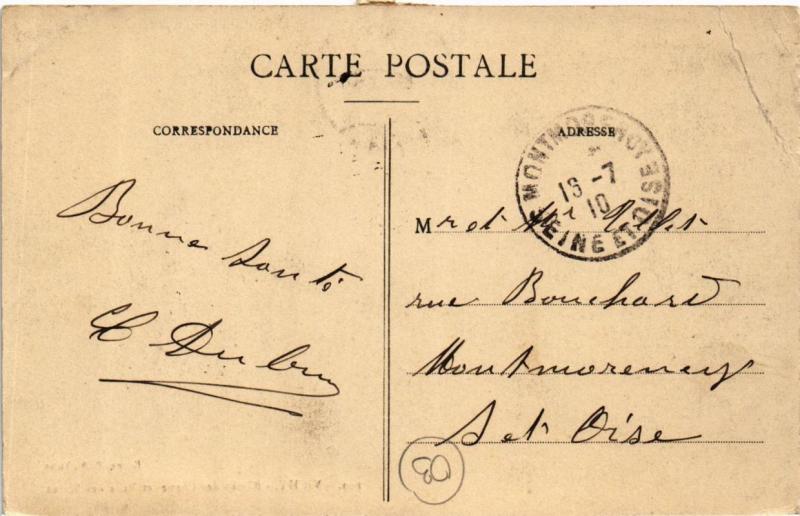 CARTE POSTALE
CORRESPONDANCE
ADRESSE
Bonne Santé
MONTMORENCY
16 -7
10
SEINE ET OISE
Mr et Mr
rue Bouchard
Montmorency
S et Oise